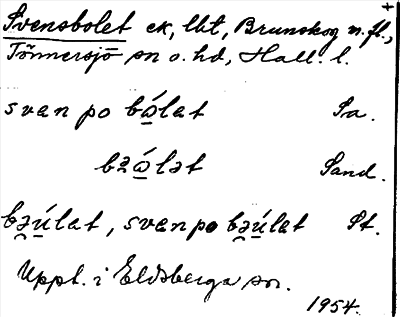 Svensbolet ek, lht, Brunskog m. fl.,
Tönnersjö sn o. hd, Hall. l.
svan po bó̠lat Sa.
bəó̠lət Sand.
bə̯ú̠lat, svanpobə̯ú̠lat St.
Uppt. i Eldsberga sn.
1954.